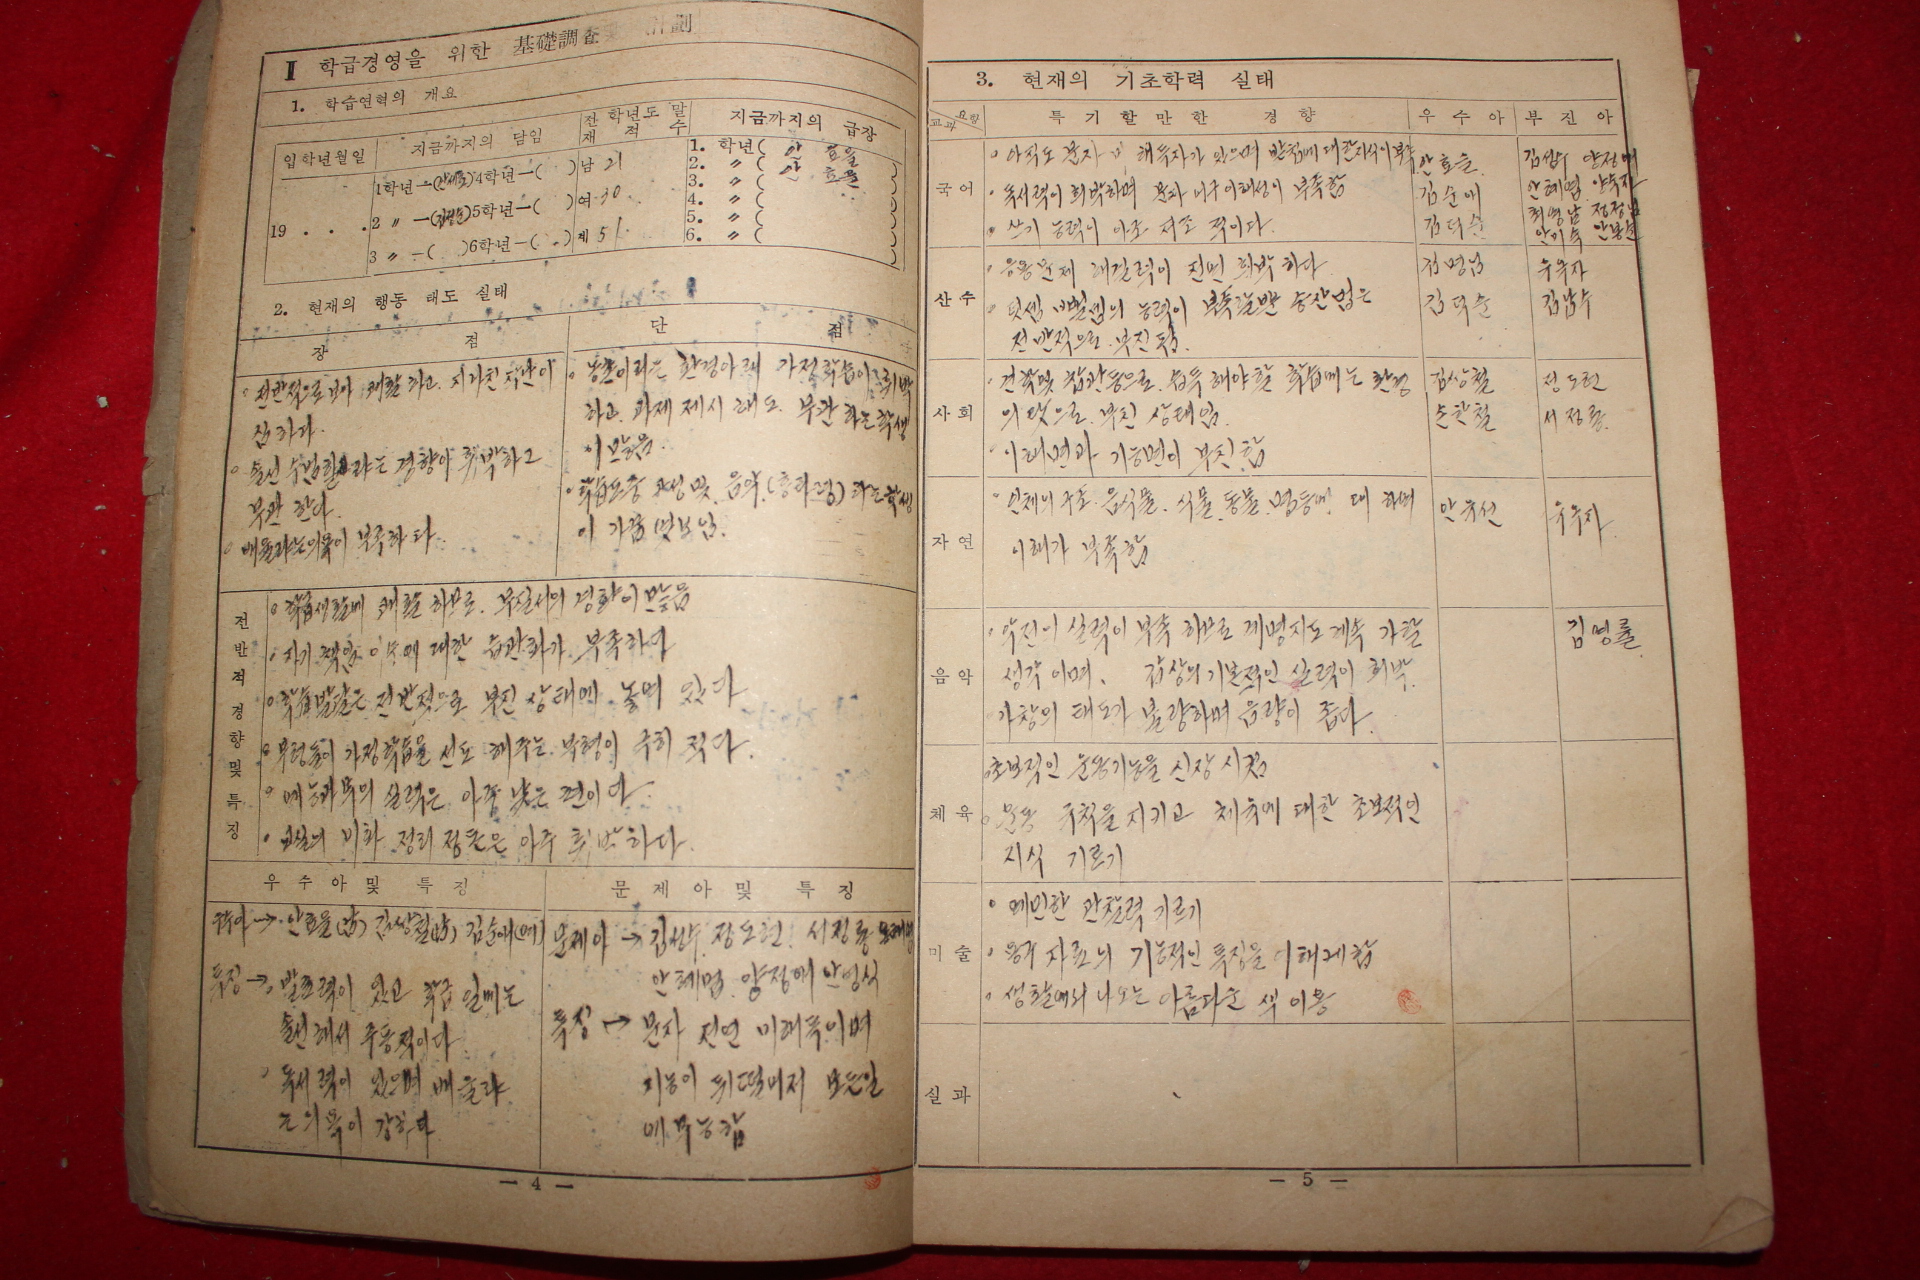 Ⅱ 학급경영을 위한 基礎調査 計劃
1. 학습연혁의 개요
입학년월일 지금까지의 담임 전학년도 말 재적수 지금까지의 급장
19 . . .
1학년—( )4학년—( )
2 〃 —( )5학년—( )
3 〃 —( )6학년—( )
남 21
여 30
계 51
1. 학년( 안 효을
2. 〃 ( 안 효을
3. 〃 (
4. 〃 (
5. 〃 (
6. 〃 (
2. 현재의 행동 태도 실태
장 점
전반적으로 보아 쾌활 하고 지나친 장난이
심하다.
솔선수범할라는 경향이 희박하고
부관 한다.
배울라는 의욕이 부족하다.
단 점
농촌이라는 환경아래 가정학습이 희박
하고 과제 제시 해도 부관하는 학생
이 많음.
이 가끔 엿보임.
전반적 경향및 특징
학습생활에 쾌활 하므로 무질서의 경향이 많음
자기 책임 에 대한 습관화가 부족하며
학습발달은 전반적으로 부진 상태에 놓여 있다
부형들이 가정학습을 선도 해주는 부형이 극히 적다.
예능과목의 실력은 아주 낮은 편이다.
교실의 미화 정리 정돈은 아주 희박하다.
우 수 아 및 특 징
우수아→ 안효을(男) 김상철(男) 김순애(女)
특징→ 발표력이 있고 학급 일에는
솔선해서 주동적이다
독서력이 있으며 배울라
는 의욕이 강하다
문 제 아 및 특 징
문제아→ 김성수 정도현 서정룡
안혜명 양정애 안영식
특징→ 문자 전연 미해독이며
지능이 뒤떨어져 모든일
에 무능함
— 4 —
3. 현재의 기초학력 실태
교과 요항 특기할만한 경향 우수아 부진아
국어
아직도 문자 미해독자가 있으며 받침에 대한 지식이 부족
독서력이 희박하며 문자 어구 이해성이 부족함
쓰기 능력이 아주 저조 적이다.
안효을
김순애
김덕순
김성수 양정애
안혜명 양숙자
최영남 정정님
안미숙
산수
응용문제 해결력이 전면 희박하다
덧셈 뺄셈의 능력이
전반적으로 부진 됨.
김명님
김덕순
우옥자
김남수
사회
견학및 참관등으로 습득해야할 학습에는 환경
의 탓으로 부진 상태임.
이해면과 기능면이 부진함
김상철
손한철
정도현
서정룡
자연
인체의 구조 음식물 식물 동물 에 대하여
이해가 부족함
안옥선
우옥자
음악
악전의 실력이 부족 하므로 계명지도 계속 가할
생각 이며, 감상의 기본적인 실력이 희박.
가창의 태도가 불량하며 음량이 좁다.
김명률
체육
초보적인 운동기능을 신장 시킴
운동 규칙을 지키고 체육에 대한 초보적인
지식 기르기
미술
예민한 관찰력 기르기
용구 자료의 기능적인 특징을 이해케함
생활에서 나오는 아름다운 색 이용
실과
— 5 —